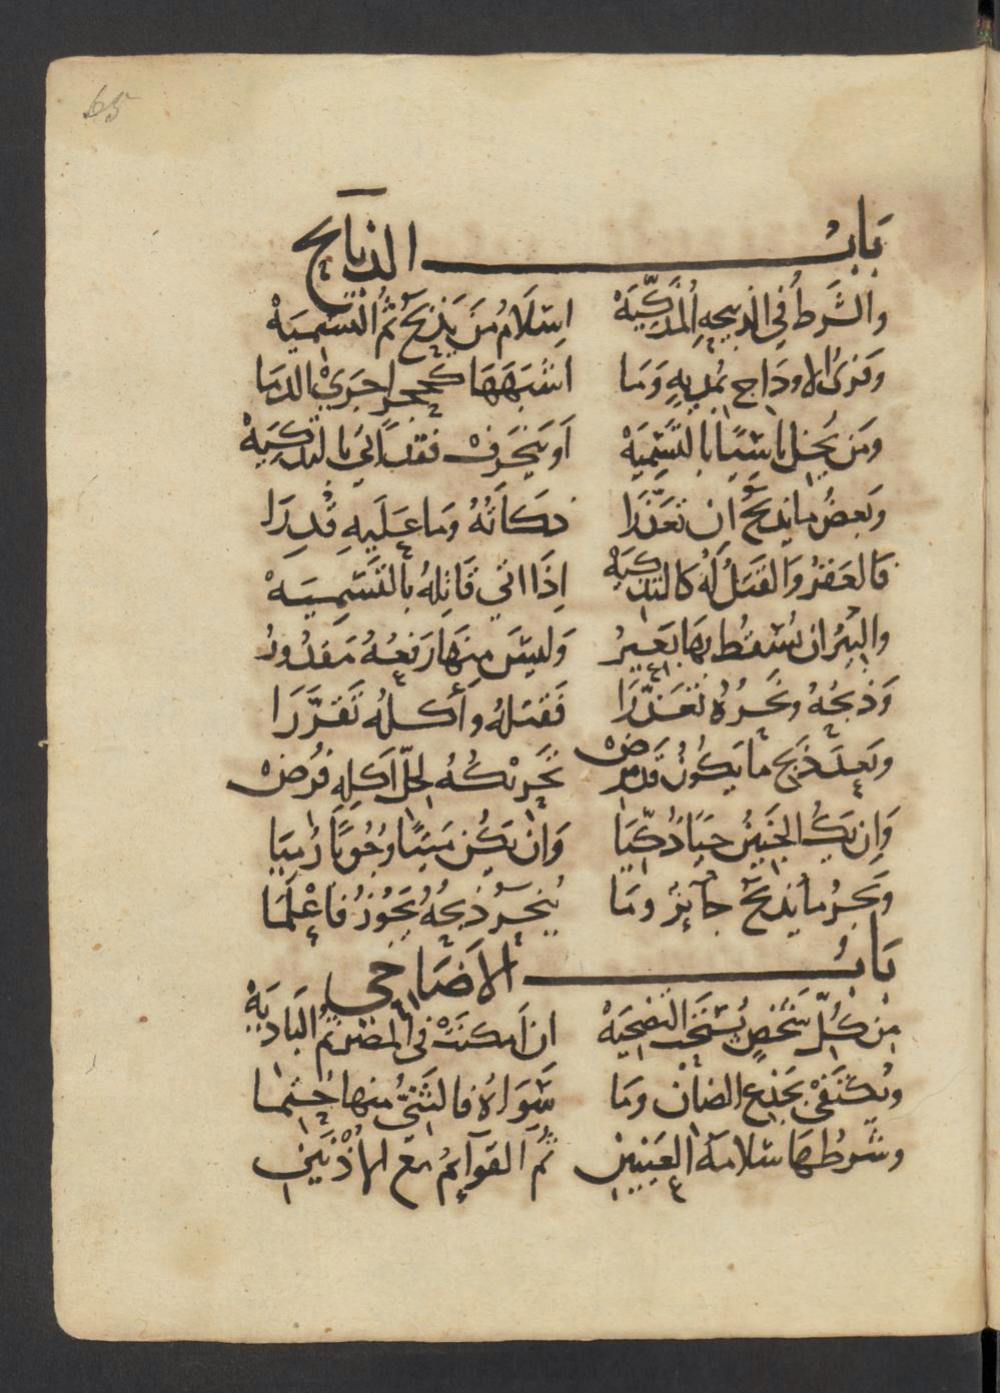 65
بَابُ الذبآئح
والشَرطُ في الذبيحهِ المُذَكِّيَهْ اِسْلَامُ مَن يَذبَحُ ثُمَّ التَسْمِيَهْ
وَفَرىُ الاَودَاجِ بمُديهٍ وَمَا اشبَهَهَا كحجرٍ اجرَيْ الدَمَا
ومَن يُخِل ناسيًا بالتَّسْمِيَهْ اَو يَنحَرِفْ فقد اَتَي بالتذكِيَهْ
وَبعضُ ما يذبحُ ان تعَذَّرَا ذكَاتُهُ وما عَلَيهِ قُدِرَا
فالعَقرُ وَالقَتلُ لَهُ كالتذكيَهْ اِذَا اتي قَاتِلهُ بالتَسْمِيَهْ
والبِئرُ ان يَسْقُط بهَا بَعيرُ وَليسَ مِنهَا رَفعُهُ مَقدُورُ
وَذبحُهُ ونحرُهُ تعَذّرَا فَقتلهُ واَكلُه تَقَرَّرَا
وبَعدَ ذَبح ما يَكُونُ قد مرضْ تحريْكُهُ لحلّ اَكلِهِ فُرضْ
وَاِن يَكُ الجَنِينُ حيَّا ذُكّيَا وَانْ يَكُن مَيتًا وجُوبًا رُمِيَا
ونَحرُ ما يُذبحُ جآئزٌ ومَا يُنحرُ ذبحُهُ يَجُوزُ فاعْلَمَا
بَابُ الاَضَاحي
مِن كُلّ شَخصٍ يُسْتَحَبُّ التضحِيَهْ ان اَمكنَتْ في المصْرِ ثُمَّ البَاديَهْ
ويُكتَفَيْ بجَذعِ الضانْ ومَا سِوَاهُ فالثَنيُّ منها حُتِمَا
وشَرطُهَا سَلامَةُ العَينينِ ثُمَّ القوآئِمُ مع الاُذْنَينِ